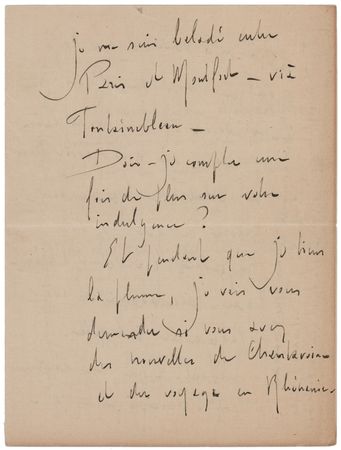 je me suis baladé entre
Paris et Montfort – via
Fontainebleau –
Dois-je compter une
fois de plus sur votre
indulgence ?
Et pendant que je tiens
la plume, je vais vous
demander si vous avez
des nouvelles de Chantavoine
et du voyage en Rhénanie –